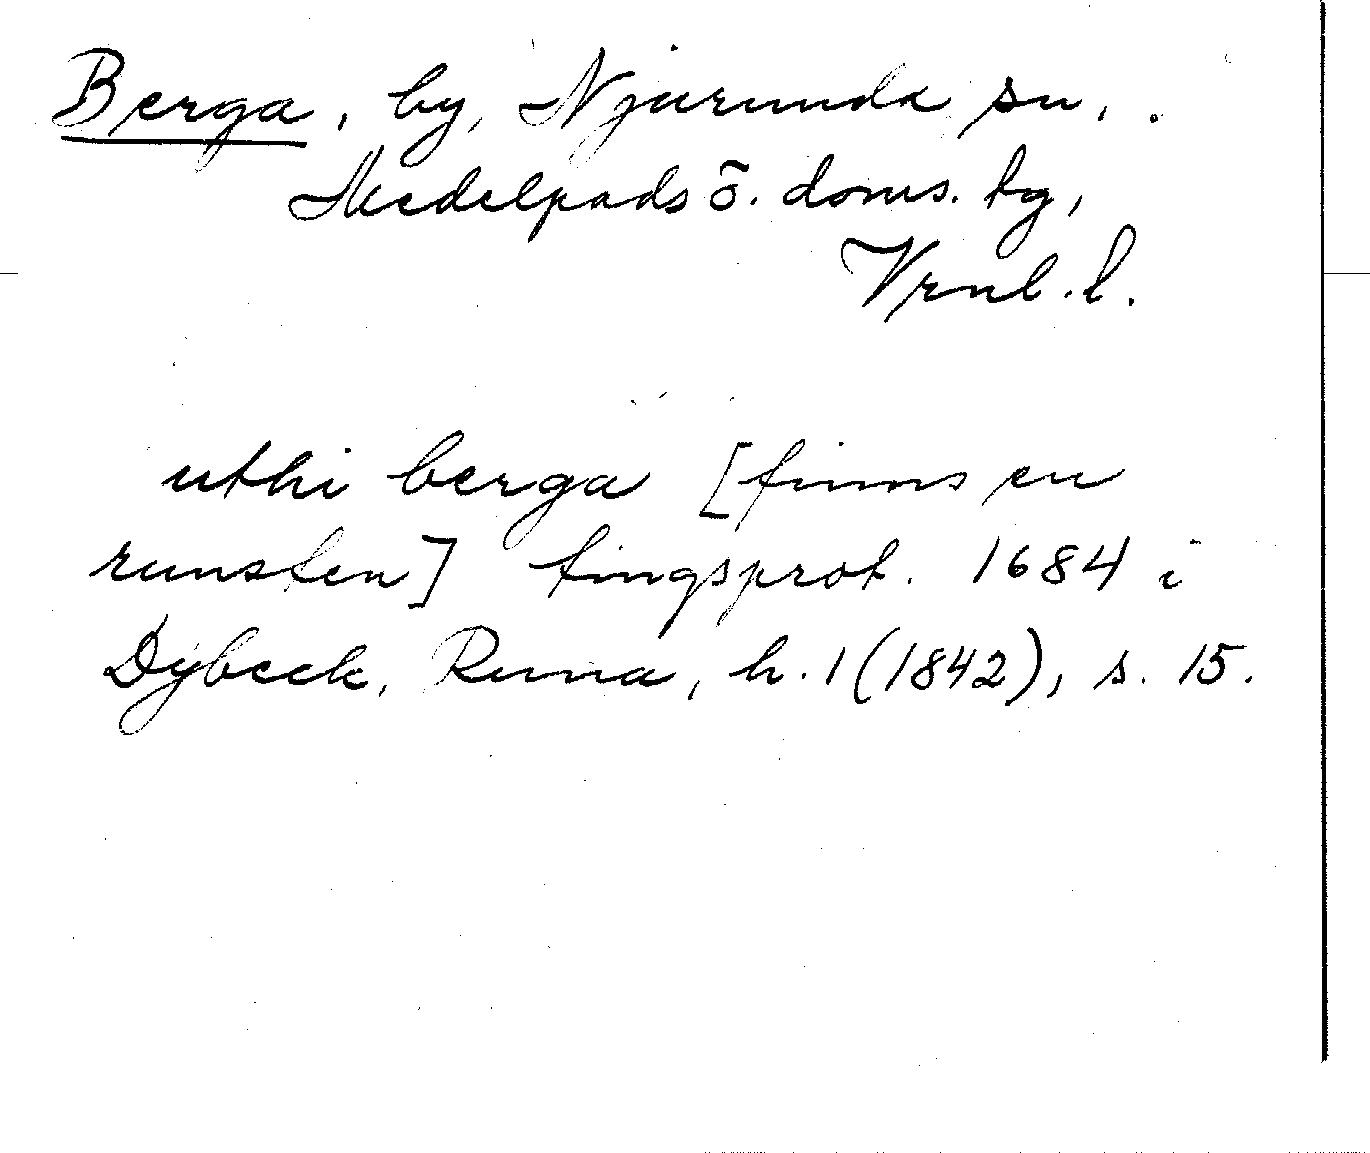 Berga, by, Njurunda sn,.
Medelpads ö. doms. tg,
Vrnl. l.
uthi berga [finns en
runsten] tingsprot. 1684 i
Dybeck, Runa, h. 1 (1842), s. 15.